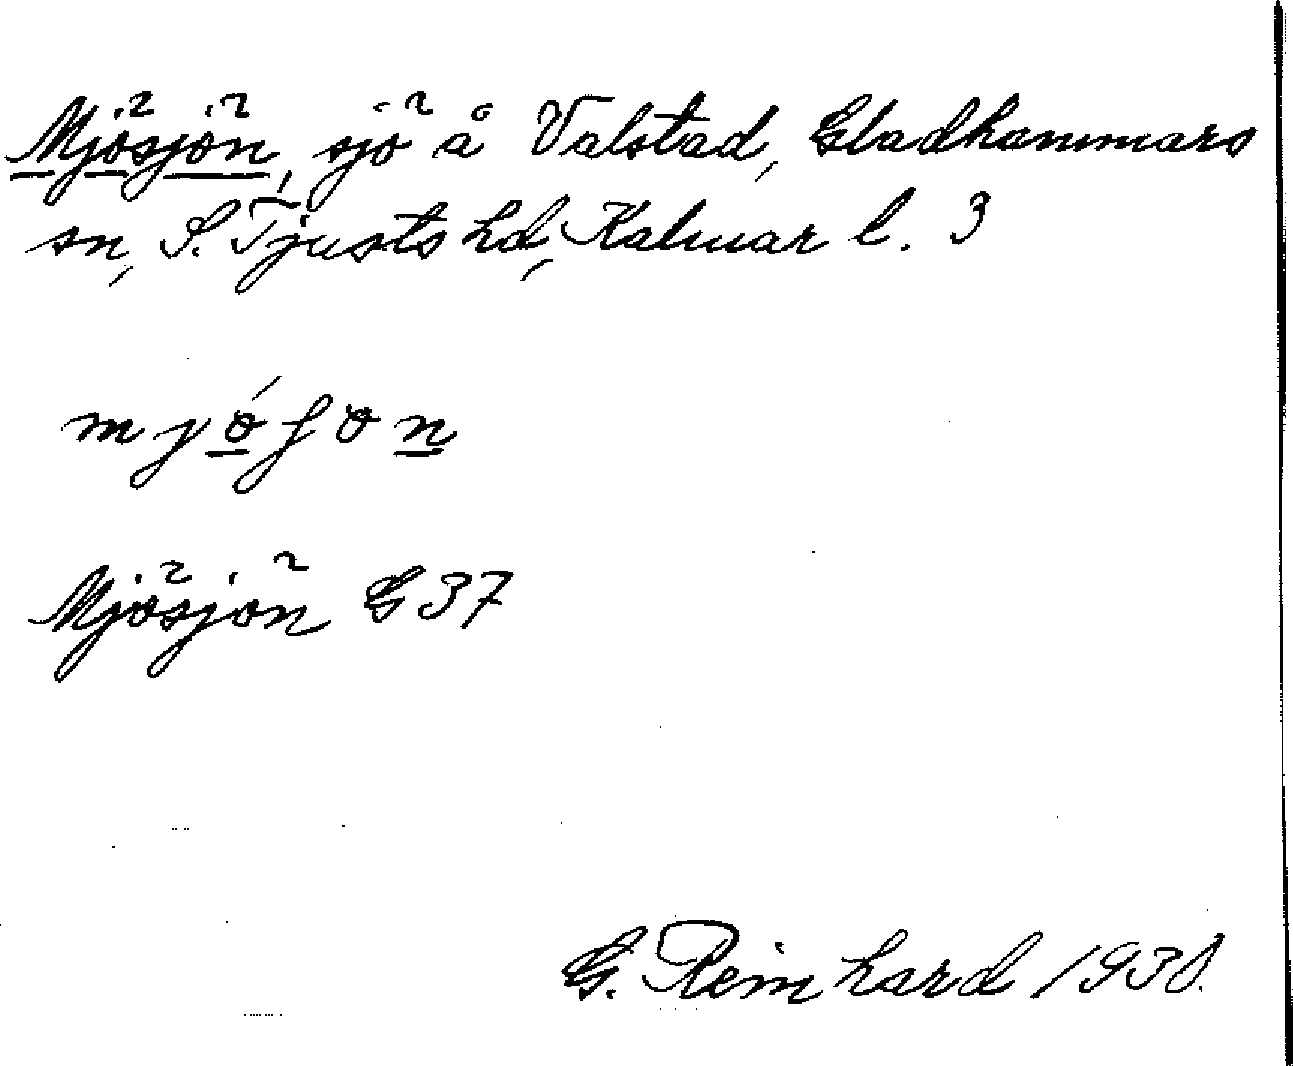 Mjösjön, sjö å Valstad, Gladhammars
sn, S. Tjusts hd, Kalmar l. 3
mjǿʃon
Mjösjön G 37
G. Reinhard 1938.